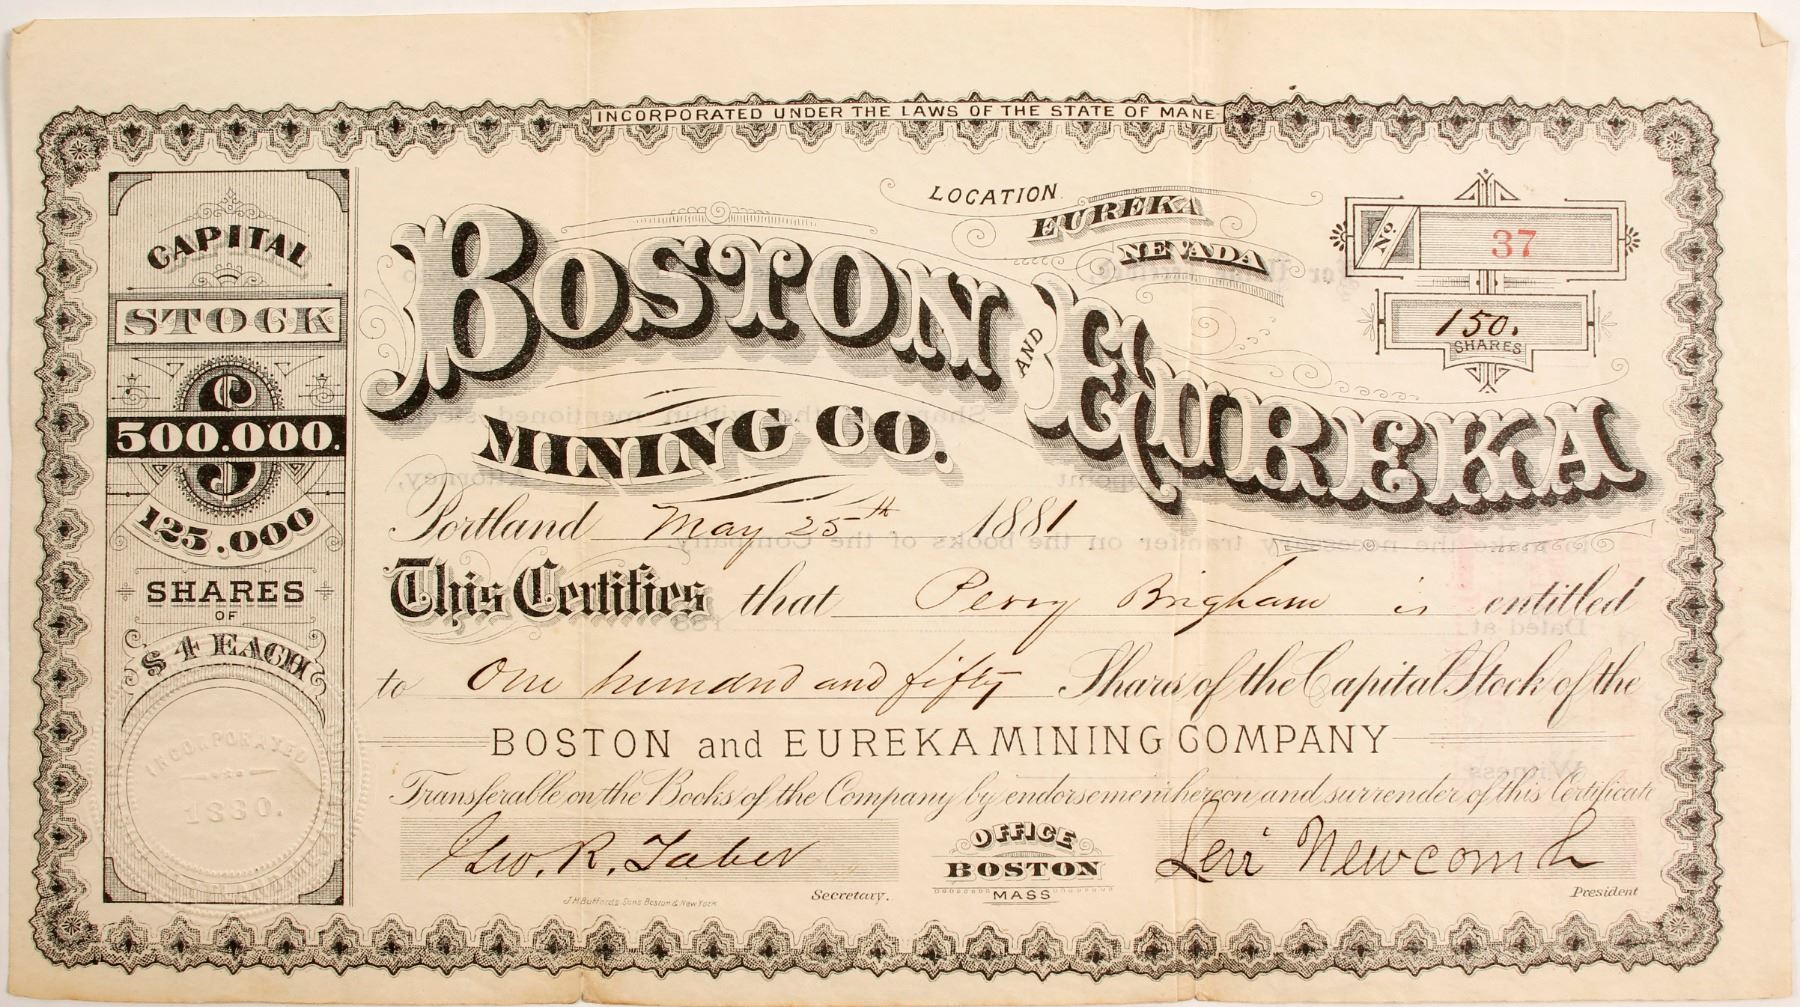 INCORPORATED UNDER THE LAWS OF THE STATE OF MANE
LOCATION
EUREKA
NEVADA
No 37
150.
SHARES
CAPITAL
STOCK
$
500.000.
125.000
SHARES
OF
$ 4 EACH
INCORPORATED
1880.
BOSTON AND EUREKA
MINING CO.
Portland May 25th 1881
This Certifies that Perry Brigham is entitled
to One hundred and fifty Shares of the Capital Stock of the
BOSTON and EUREKA MINING COMPANY
Transferable on the Books of the Company by endorsement hereon and surrender of this Certificate
Geo. R. Taber
Secretary.
OFFICE
BOSTON
MASS
Levi Newcomb
President
J.H. Bufford's Sons Boston & New York